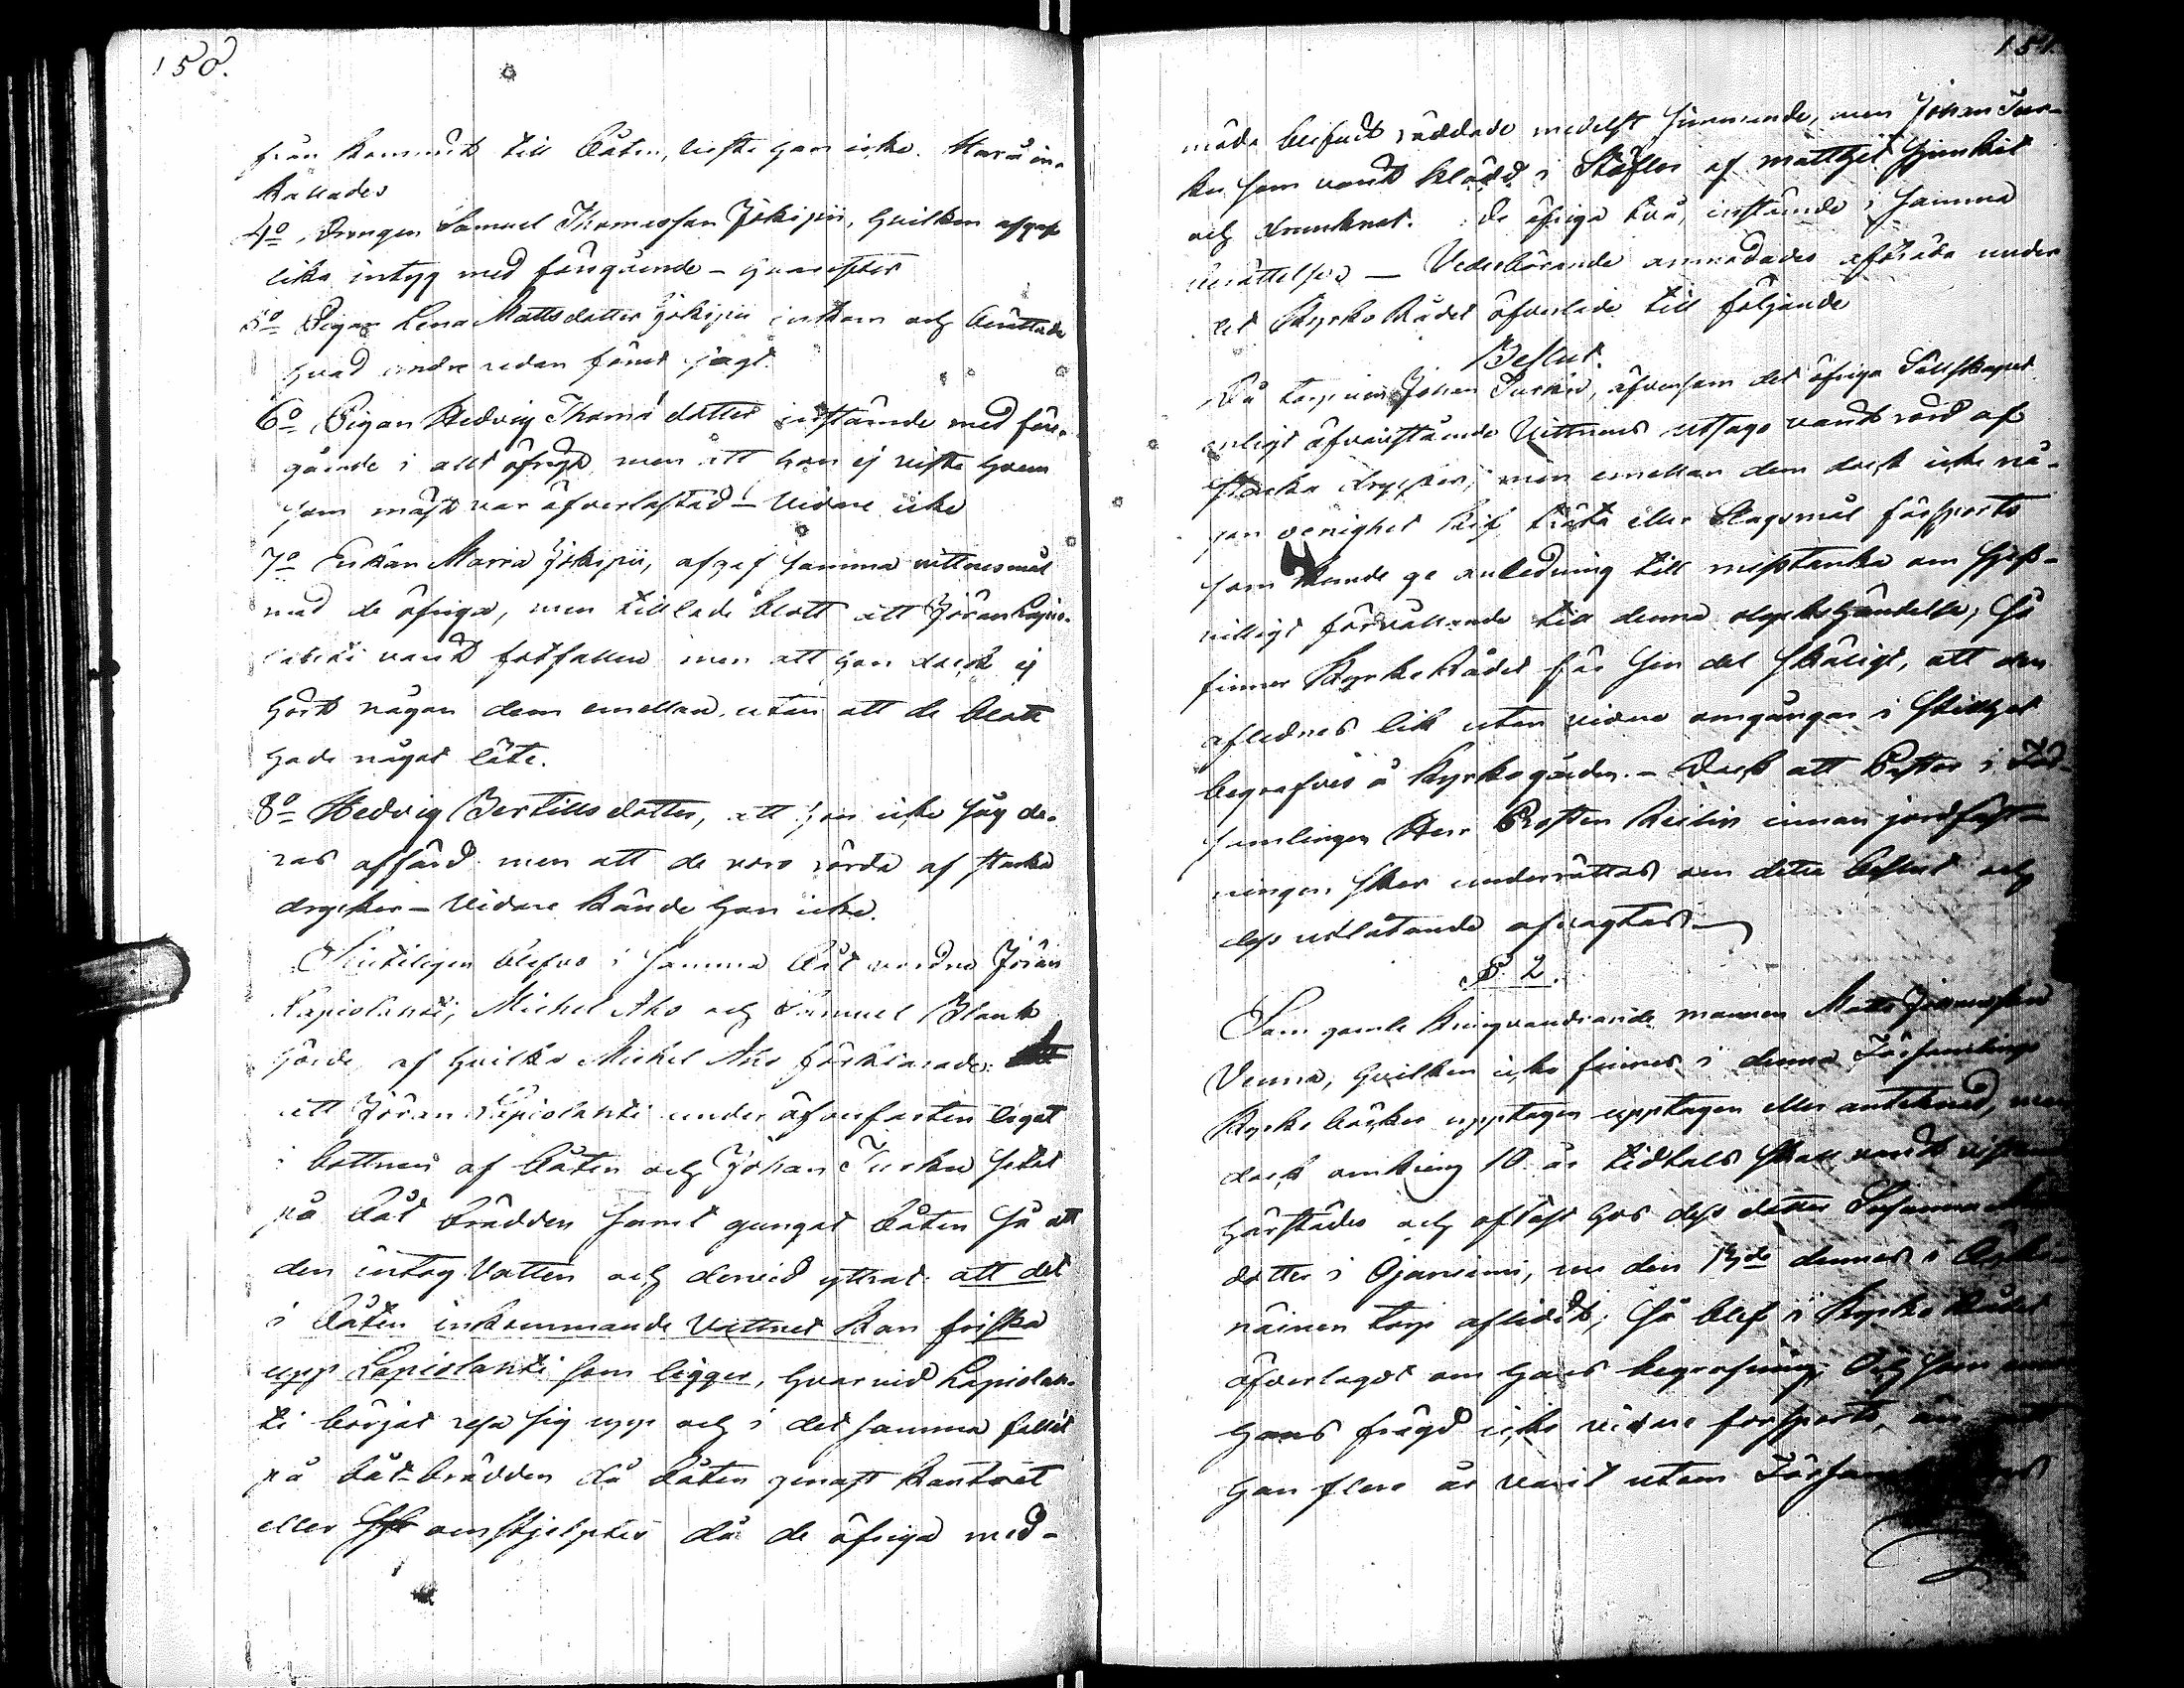 150.
från kommit till båten, viste han icke. Härå in-
kallades
4o Drengen Samuel Thomasson Jokipii, hvilken afgaf
lika intyg med föregående – hvarefter
5o Pigan Lena Mattsdotter Jokipii inkom och berättade
hvad andre redan förut sagt.
6o Pigan Hedvig Thomædotter instämde med före-
gående i allt öfrigt, men att hon ej viste hvem
som mäst var öfverlastad – Vidare icke
7o Enkan Maria Jokipii, afgaf samma vittnesmål
med de öfriga, men tillade blott att Jöran Lapio-
lahti varit fotfallen men att hon dock ej
hört någon dem emellan, utan att de blott
hade något läte.
8o Hedvig Bertillsdotter, att hon icke såg de-
ras affärd men att de voro rörda af starka
drycker – Vidare kände hon icke.
Sluteligen blefvo i samma båt varande Jöran
Lapiolahti, Michel Aho och Samuel Blank
hörde af hvilka Michel Aho förklarade:
att Jöran Lapiolahti under öfverfarten legat
i bottnen af båten och Johan Turku setat
på båt brädden samt gungat båten så att
den intog Vatten och dervid yttrat: att det
i båten inkommande Vattnet kan friska
upp Lapiolahti som ligger, hvarvid Lapiolah-
ti börjat resa sig upp och i det samma fallit
på båt-brädden då båten genast kantrat
eller omstjelptes då de öfriga med-
151.
möda blifvit räddade medelst simmande, men Johan Tur-
ku som varit klädd i Stöflor af matthet sjunkit
och drunknat. De öfriga två, instämde i samma
berättelse – Vederbörande anmodades afträda under
det Kyrko Rådet öfverlade till följande
Beslut.
Då torparen Johan Turku, äfvensom det öfriga Sällskapet
enligt ofvanstående Vittnens utsago varit rörd af
starka drycker, men emellan dem dock icke nå-
gon oenighet kif, träta eller Slagsmål försports
som kunde ge anledning till misstanka om sjelf-
villigt förvållande till denna olyckshändelse, Så
finner KyrkoRådet för sin del skäligt, att den
aflednes lik utan vidare omgångar i stillhet
begrafves å Kyrkogården. – Dock att Pastor i För-
samlingen Herr Prosten Reilin innan jordfäst-
ningen sker underrättas om detta beslut och
dess utlåtande afvagtas
§. 2.
Som gamle kringvandrande mannen Matts
Venna, hvilken icke finnes i denna Församlings
Kyrko böcker upptagen upptagen eller antecknad, men
dock omkring 10 år tidtals skall varit
härstädes och oftast hos dess dotter Susanna
dotter i Ojaniemi, nu den 13de dennes i
näinen torp aflidit; Så blef i Kyrko Rådet
öfverlagdt om hans begrafning; Och som
hans frägd icke vidare försports, än att
han flere år varit utom